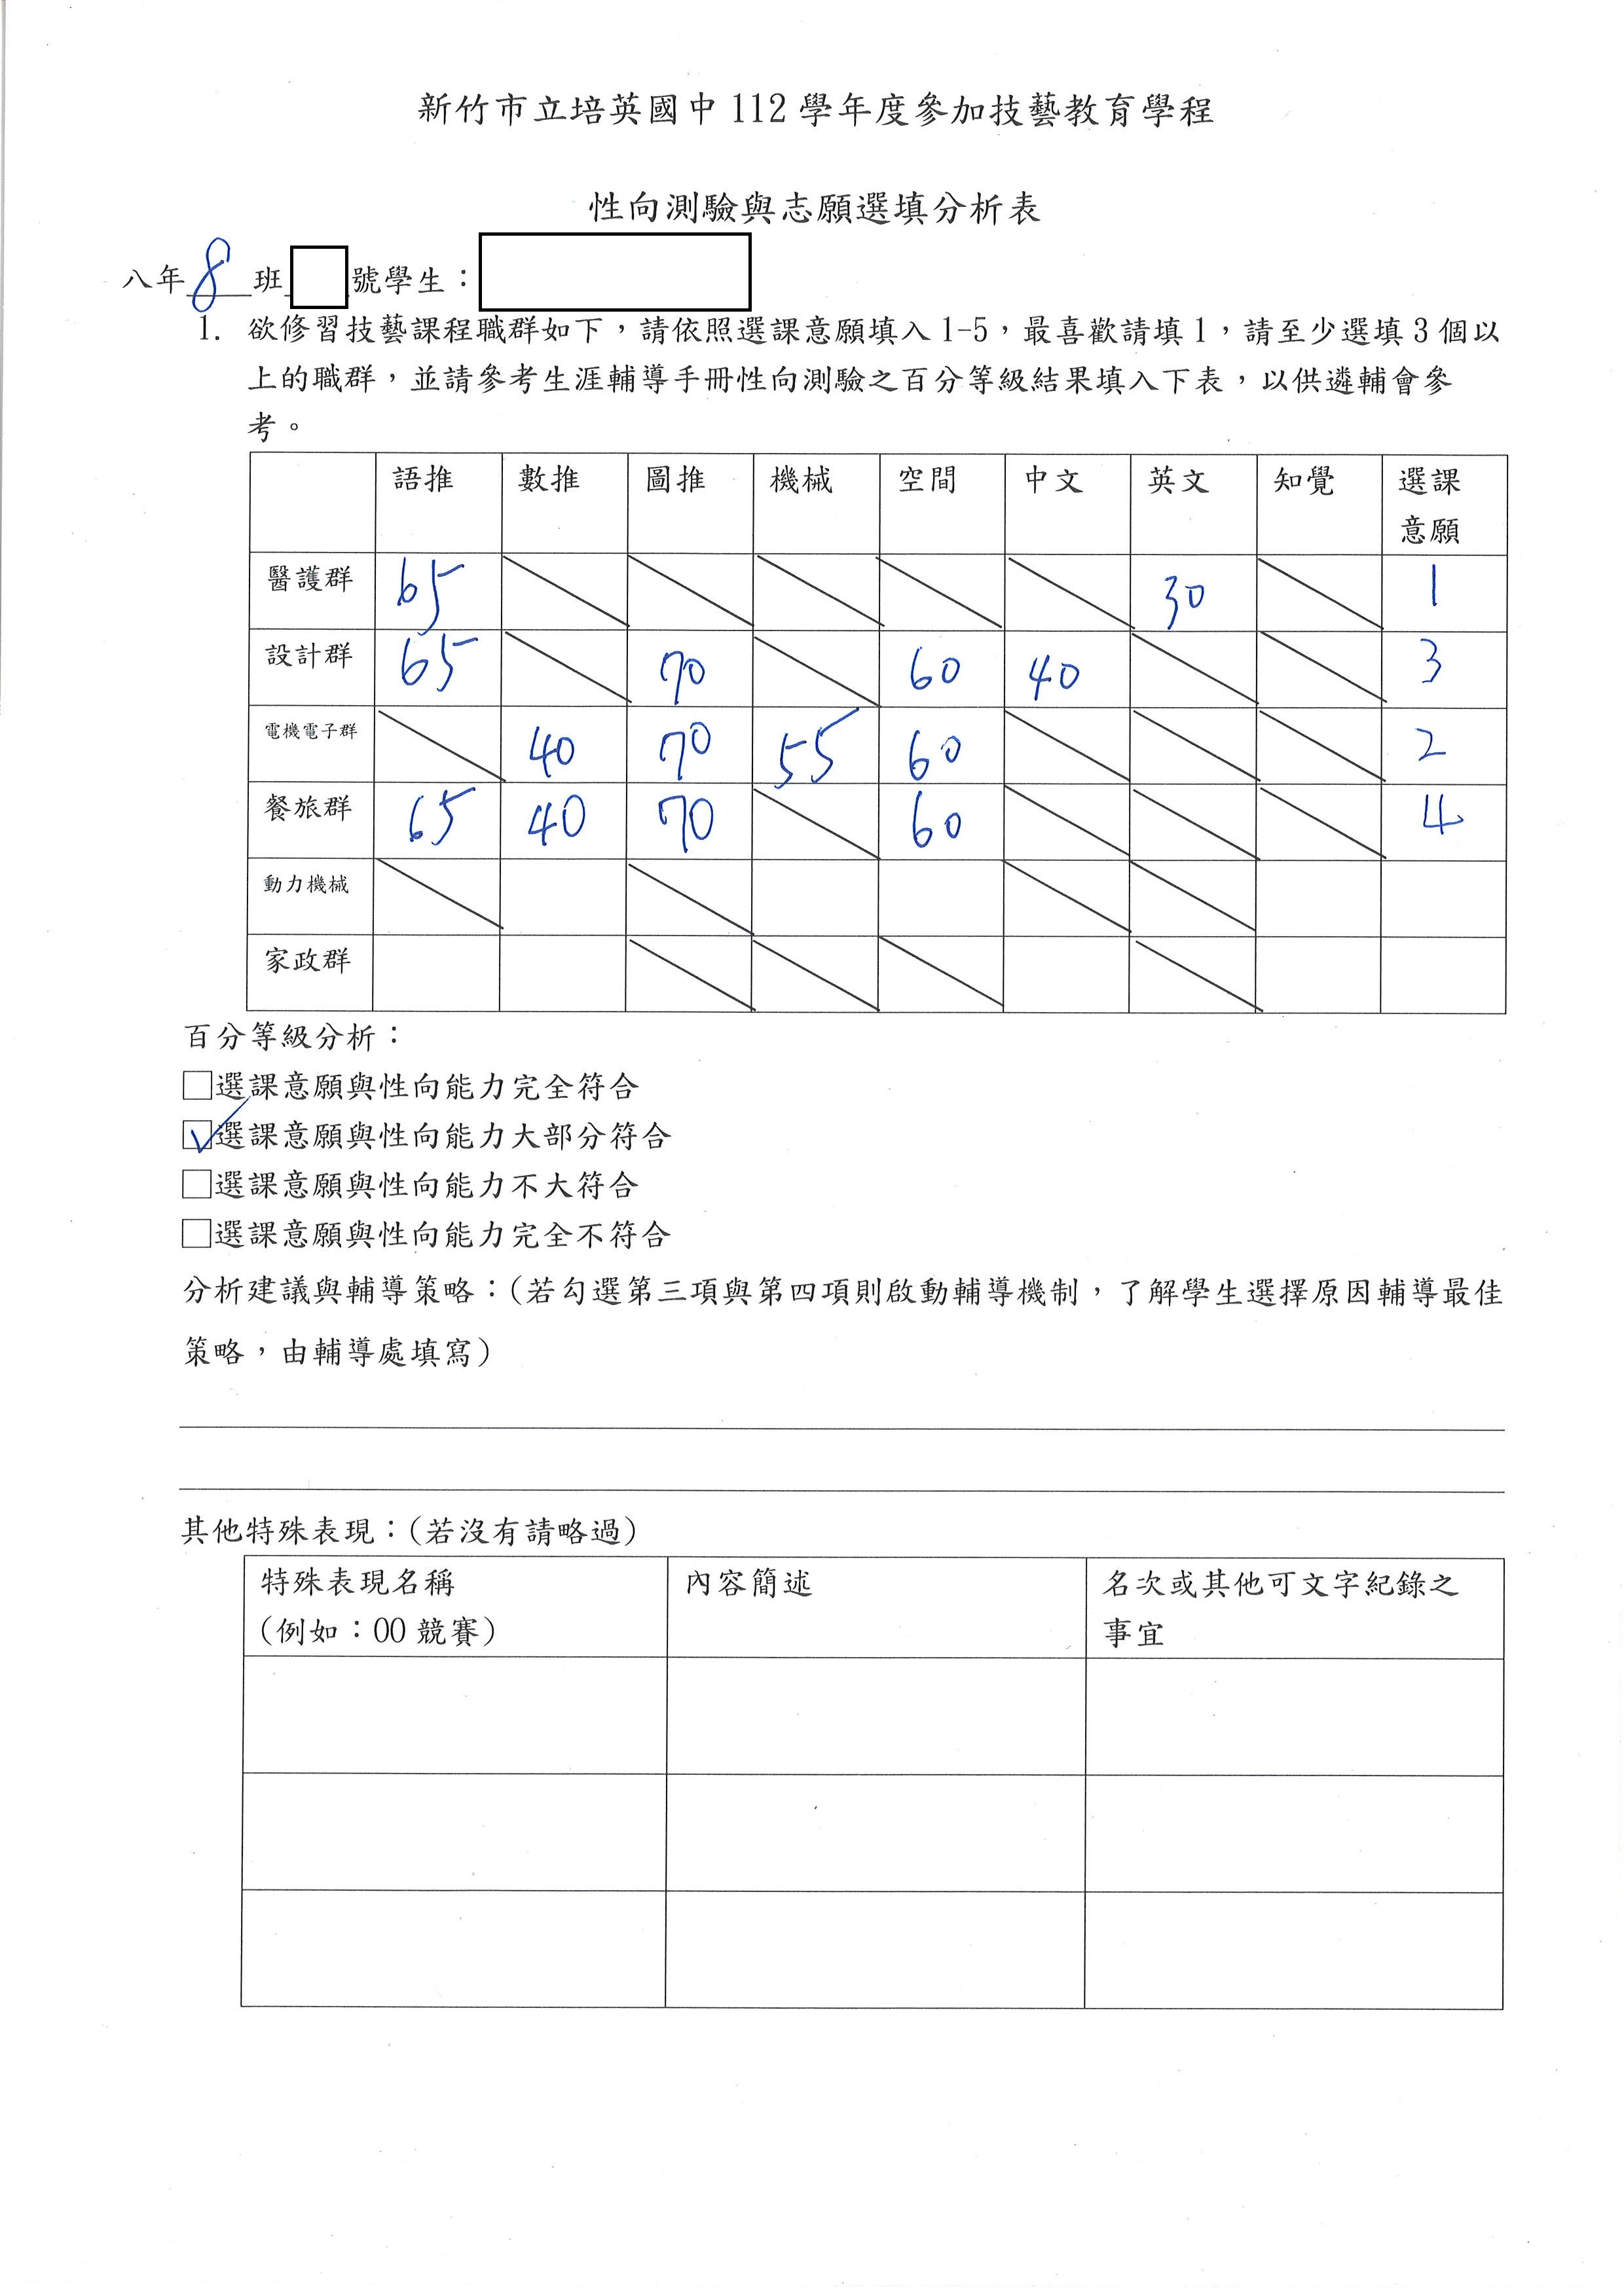 新竹市立培英國中 112 學年度參加技藝教育學程
性向測驗與志願選填分析表
八年 8 班 號學生：
1. 欲修習技藝課程職群如下，請依照選課意願填入 1-5，最喜歡請填 1，請至少選填 3 個以
上的職群，並請參考生涯輔導手冊性向測驗之百分等級結果填入下表，以供遴輔會參
考。
語推 數推 圖推 機械 空間 中文 英文 知覺 選課
意願
醫護群 65 30 1
設計群 65 70 60 40 3
電機電子群 40 70 55 60 2
餐旅群 65 40 70 60 4
動力機械
家政群
百分等級分析：
□選課意願與性向能力完全符合
☑選課意願與性向能力大部分符合
□選課意願與性向能力不大符合
□選課意願與性向能力完全不符合
分析建議與輔導策略：(若勾選第三項與第四項則啟動輔導機制，了解學生選擇原因輔導最佳
策略，由輔導處填寫)
其他特殊表現：(若沒有請略過)
特殊表現名稱 內容簡述 名次或其他可文字紀錄之
(例如：00 競賽) 事宜